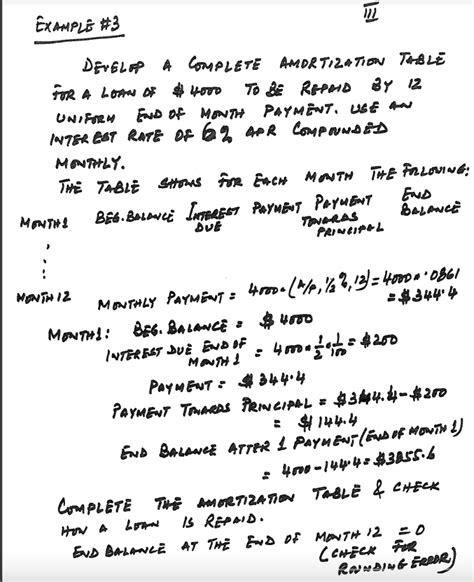 III
EXAMPLE #3
DEVELOP A COMPLETE AMORTIZATION TABLE
FOR A LOAN OF $4000 TO BE REPAID BY 12
UNIFORM END OF MONTH PAYMENT. USE AN
INTEREST RATE OF 6% APR COMPOUNDED
MONTHLY.
THE TABLE SHOWS FOR EACH MONTH THE FOLLOWING:
BEG. BALANCE INTEREST DUE PAYMENT PAYMENT TOWARDS PRINCIPAL END BALANCE
MONTH 1
MONTH 12
MONTHLY PAYMENT = 4000 · (A/P, 1/2 %, 12) = 4000 · .0861
= $344.4
MONTH 1: BEG. BALANCE = $4000
INTEREST DUE END OF MONTH 1 = 4000 · 1/2 · 1/100 = $200
PAYMENT = $344.4
PAYMENT TOWARDS PRINCIPAL = $344.4 - $200
= $144.4
END BALANCE AFTER 1 PAYMENT (END OF MONTH 1)
= 4000 - 144.4 = $3855.6
COMPLETE THE AMORTIZATION TABLE & CHECK
HOW A LOAN IS REPAID.
END BALANCE AT THE END OF MONTH 12 = 0
(CHECK FOR
ROUNDING ERROR)